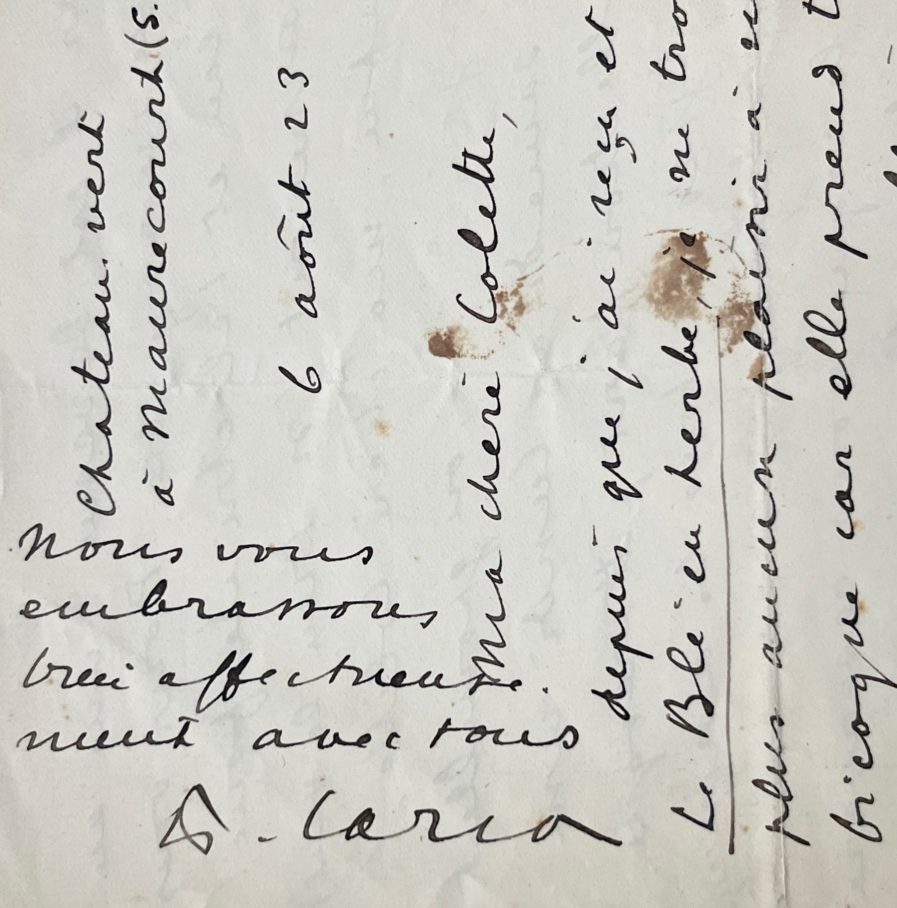 Chateau vert
à Maurecourt (S.
6 août 23
Ma chère Colette,
depuis que j'ai reçu et
Le Blé en herbe, je ne tro
plus aucun plaisir à
bicoque car elle prend t
Nous vous
embrassons
bien affectueuse-
ment avec tous
F. Carco